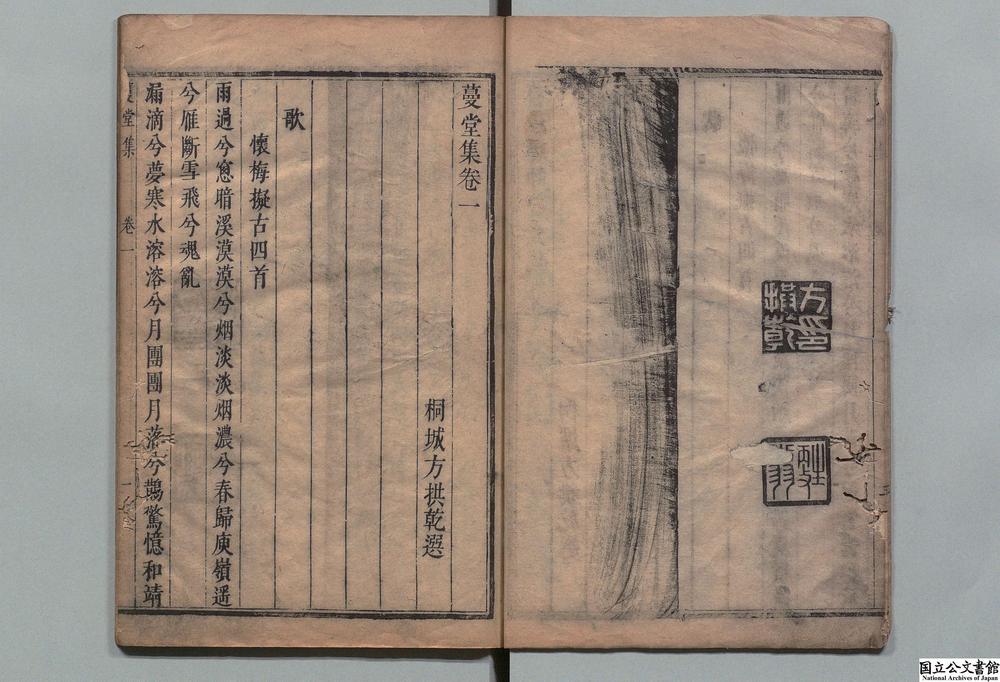 方拱
乾印
蔓堂集卷一
桐城方拱乾選
歌
懷梅擬古四首
雨過兮窓暗溪漠漠兮烟淡淡烟濃兮春歸庾嶺遥
兮雁斷雪飛兮魂亂
漏滴兮夢寒水溶溶兮月團團月落兮鵲驚憶和靖
堂集
卷一
国立公文書館
National Archives of Japan